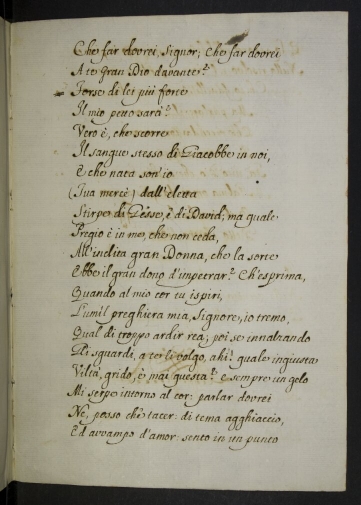 Che far dovrei, Signor; Che far dovrei
A te Gran Dio davante?
Forse di lei più forte
Il mio petto sarà?
Vero è, che scorre
Il sangue stesso di Giacobbe in noi,
E che nata son'io
(Tua mercè) dall'eletta
Stirpe di Gesse, e di David; ma quale
Pregio è in me, che non ceda,
All'inclita gran Donna, che la sorte
Ebbe il gran dono d'impetrar? Ch'esprima,
Quando al mio cor tu ispiri,
L'umil preghiera mia, Signore, io tremo,
Qual di troppo ardir rea; poi se innalzando
Gli sguardi, a te li volgo, ahi! quale ingiusta
Viltà, grido, è mai questa? e sempre un gelo
Mi serpe intorno al cor: parlar dovrei
Ne, posso che tacer: di tema agghiaccio,
Ed avvampo d'amor: sento in un punto